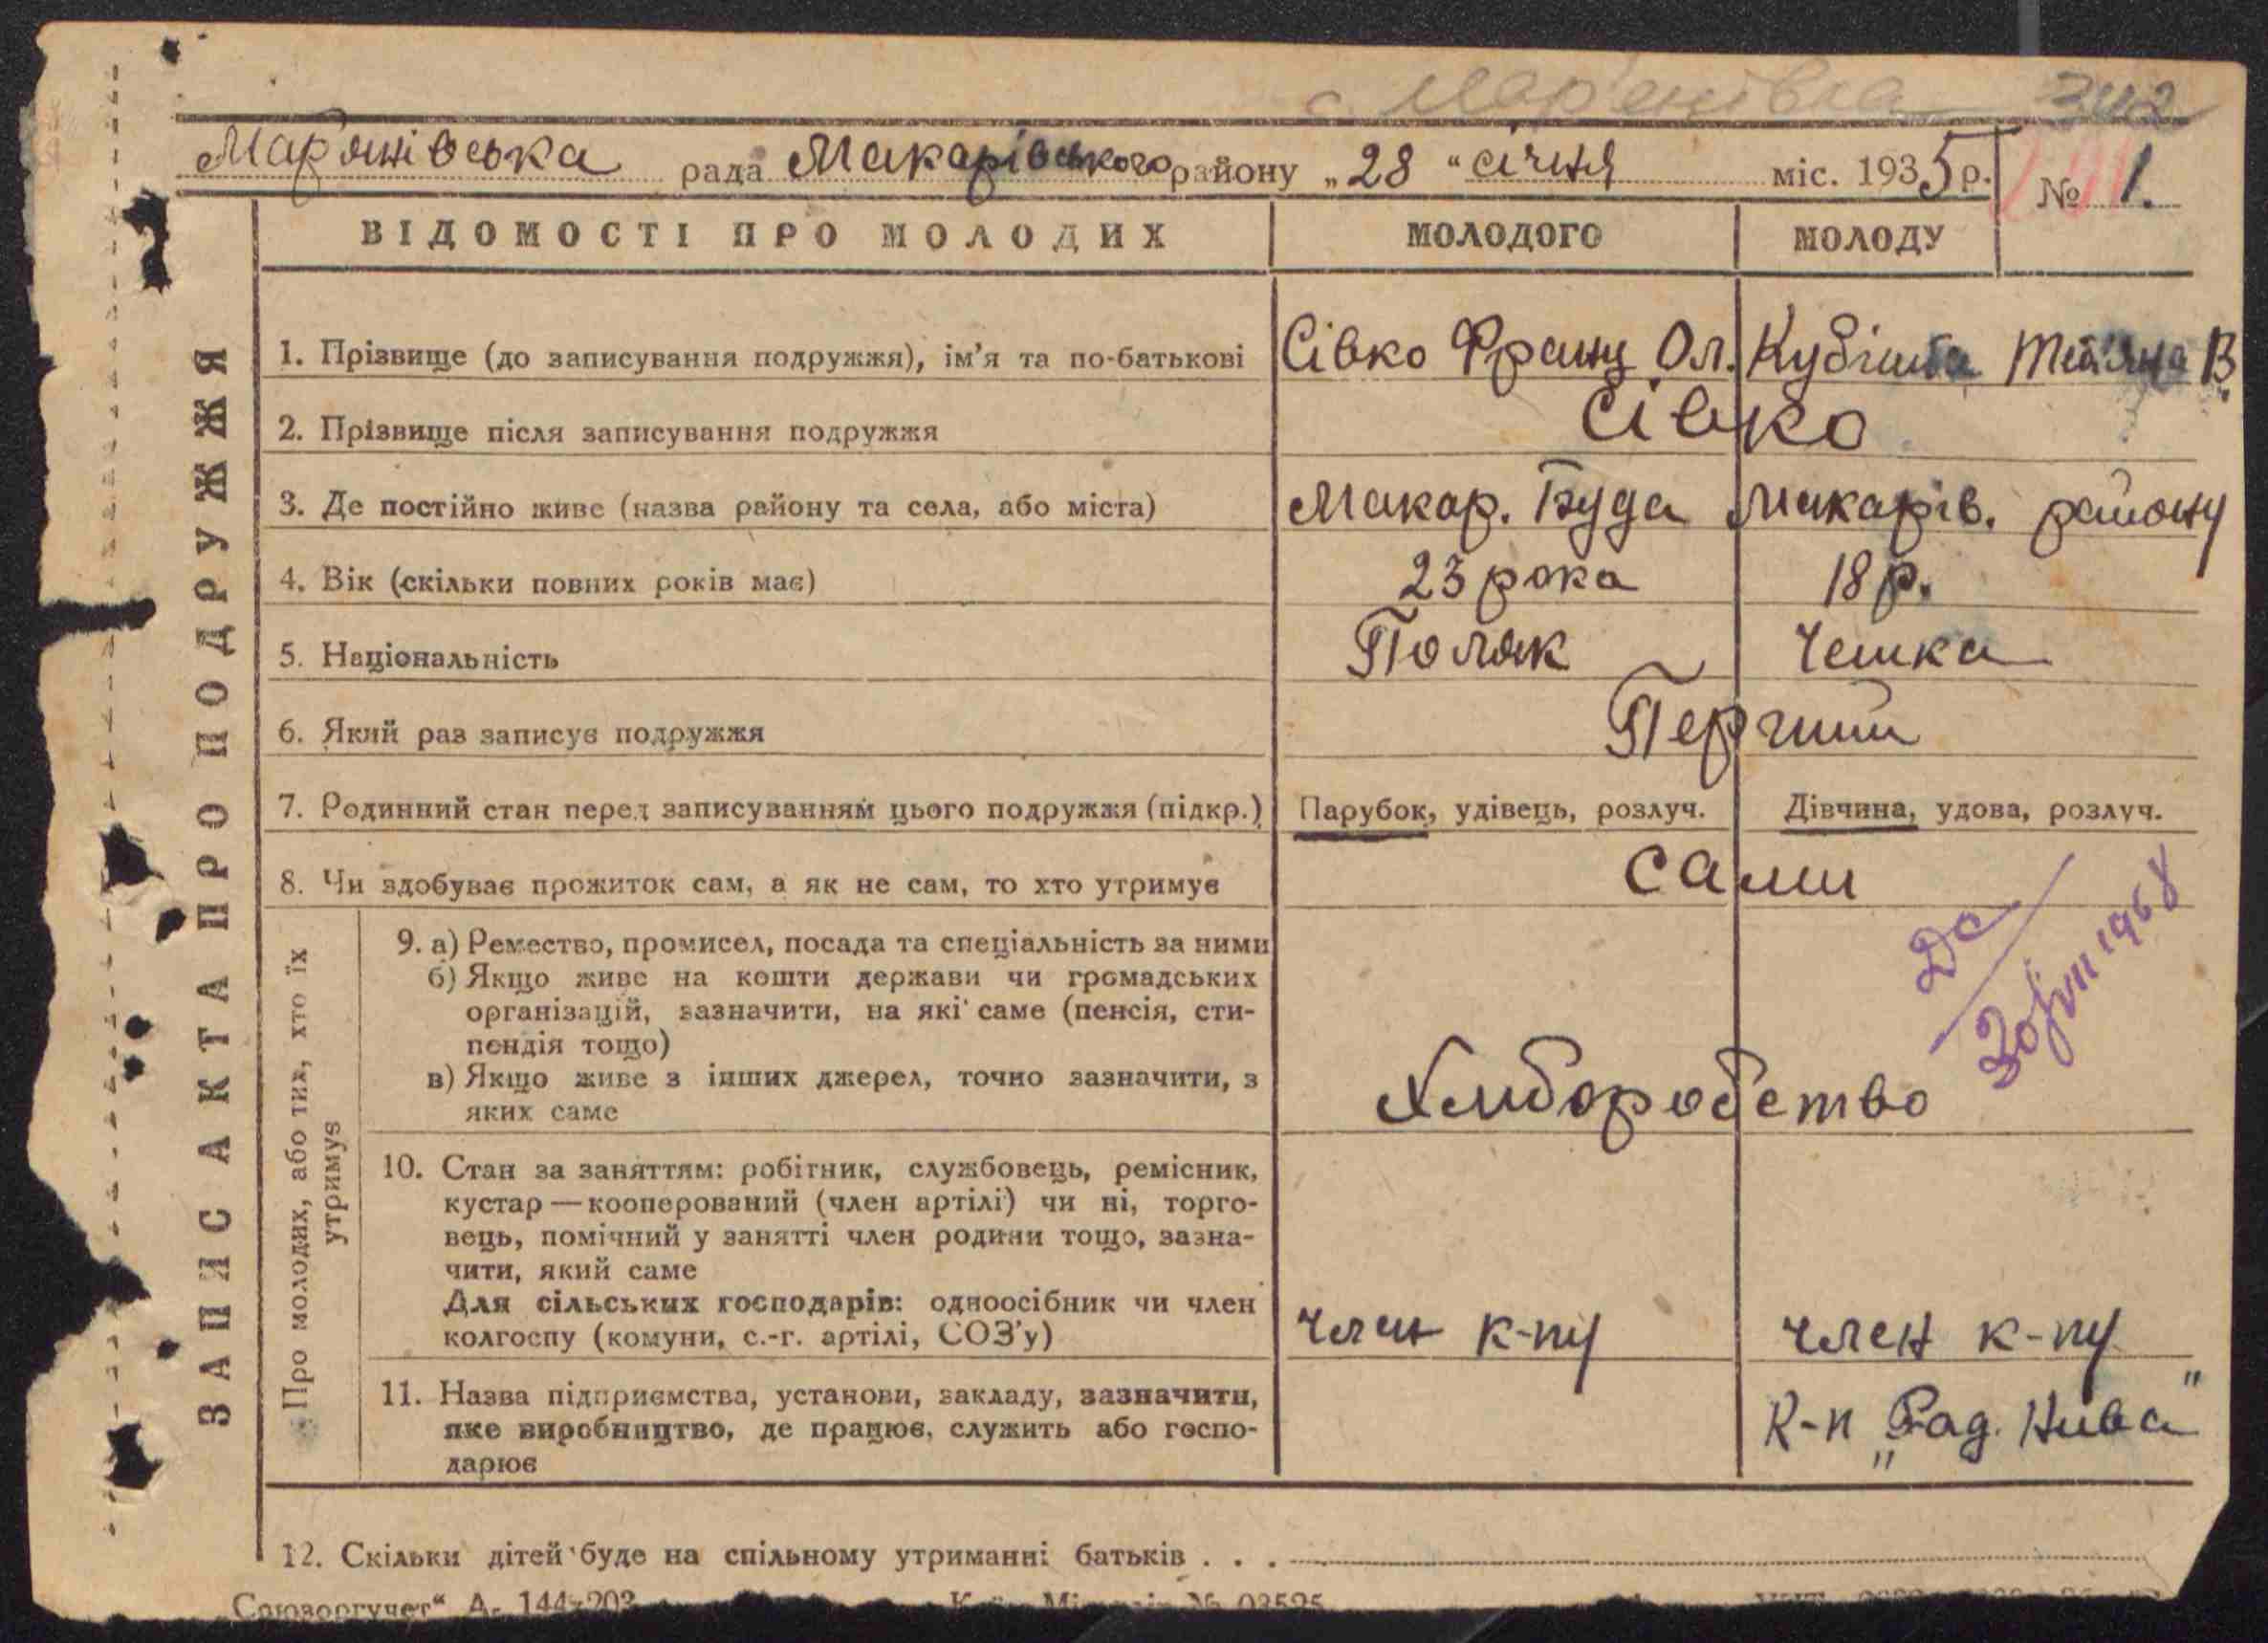 с. Мар'янівка 342
Мар'янівська рада Макарівського району „28 “ січня міс. 1935 р. № 1.
ВІДОМОСТІ ПРО МОЛОДИХ МОЛОДОГО МОЛОДУ
ЗАПИС АКТА ПРО ПОДРУЖЖЯ
1. Прізвище (до записування подружжя), ім'я та по-батькові Сівко Франц Ол. Кубішта Тетяна В.
2. Прізвище після записування подружжя Сівко
3. Де постійно живе (назва району та села, або міста) Макар. Буда Макарів. району
4. Вік (скільки повних років має) 23 рока 18 р.
5. Національність Поляк Чешка
6. Який раз записує подружжя Перший
7. Родинний стан перед записуванням цього подружжя (підкр.) Парубок, удівець, розлуч. Дівчина, удова, розлуч.
8. Чи здобуває прожиток сам, а як не сам, то хто утримує сами
Про молодих, або тих, хто їх
утримує
9. а) Ремество, промисел, посада та спеціальність за ними
б) Якщо живе на кошти держави чи громадських
організацій, зазначити, на які саме (пенсія, сти-
пендія тощо)
в) Якщо живе з інших джерел, точно зазначити, з
яких саме Хліборобство
30/VIII 1968
10. Стан за заняттям: робітник, службовець, ремісник,
кустар — кооперований (член артілі) чи ні, торго-
вець, помічний у занятті член родини тощо, зазна-
чити, який саме
Для сільських господарів: одноосібник чи член
колгоспу (комуни, с.-г. артілі, СОЗ'у) член к-пу член к-пу
11. Назва підприємства, установи, закладу, зазначити,
яке виробництво, де працює, служить або госпо-
дарює К-п „Рад. Нива"
12. Скільки дітей буде на спільному утриманні батьків . . .
Союзоргучет“ А- 144-203 № 03595